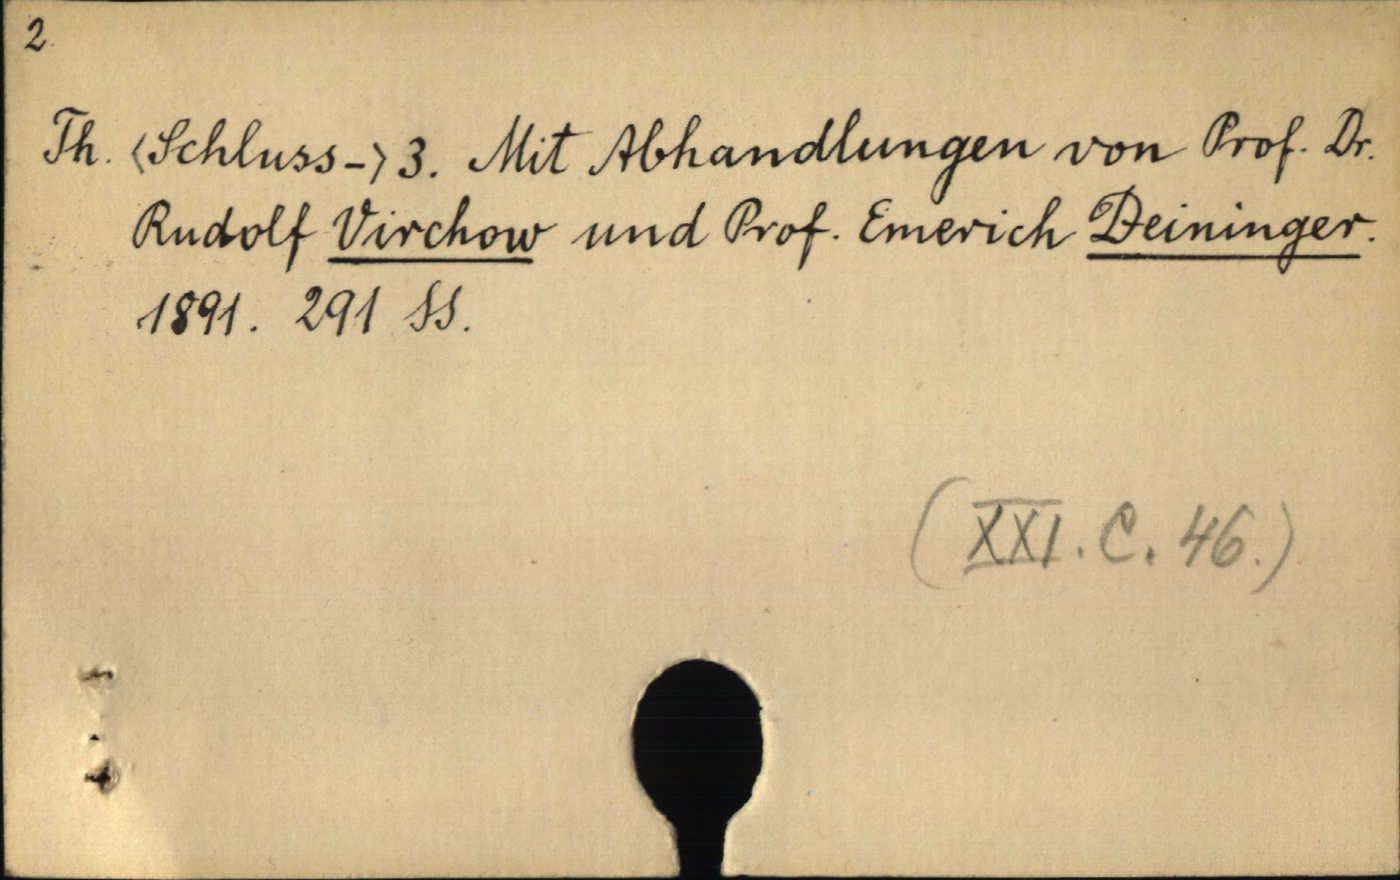 2
Th. <Schluss-> 3. Mit Abhandlungen von Prof. Dr.
Rudolf Virchow und Prof. Emerich Deininger.
1891. 291 SS.
(XXI. C. 46.)